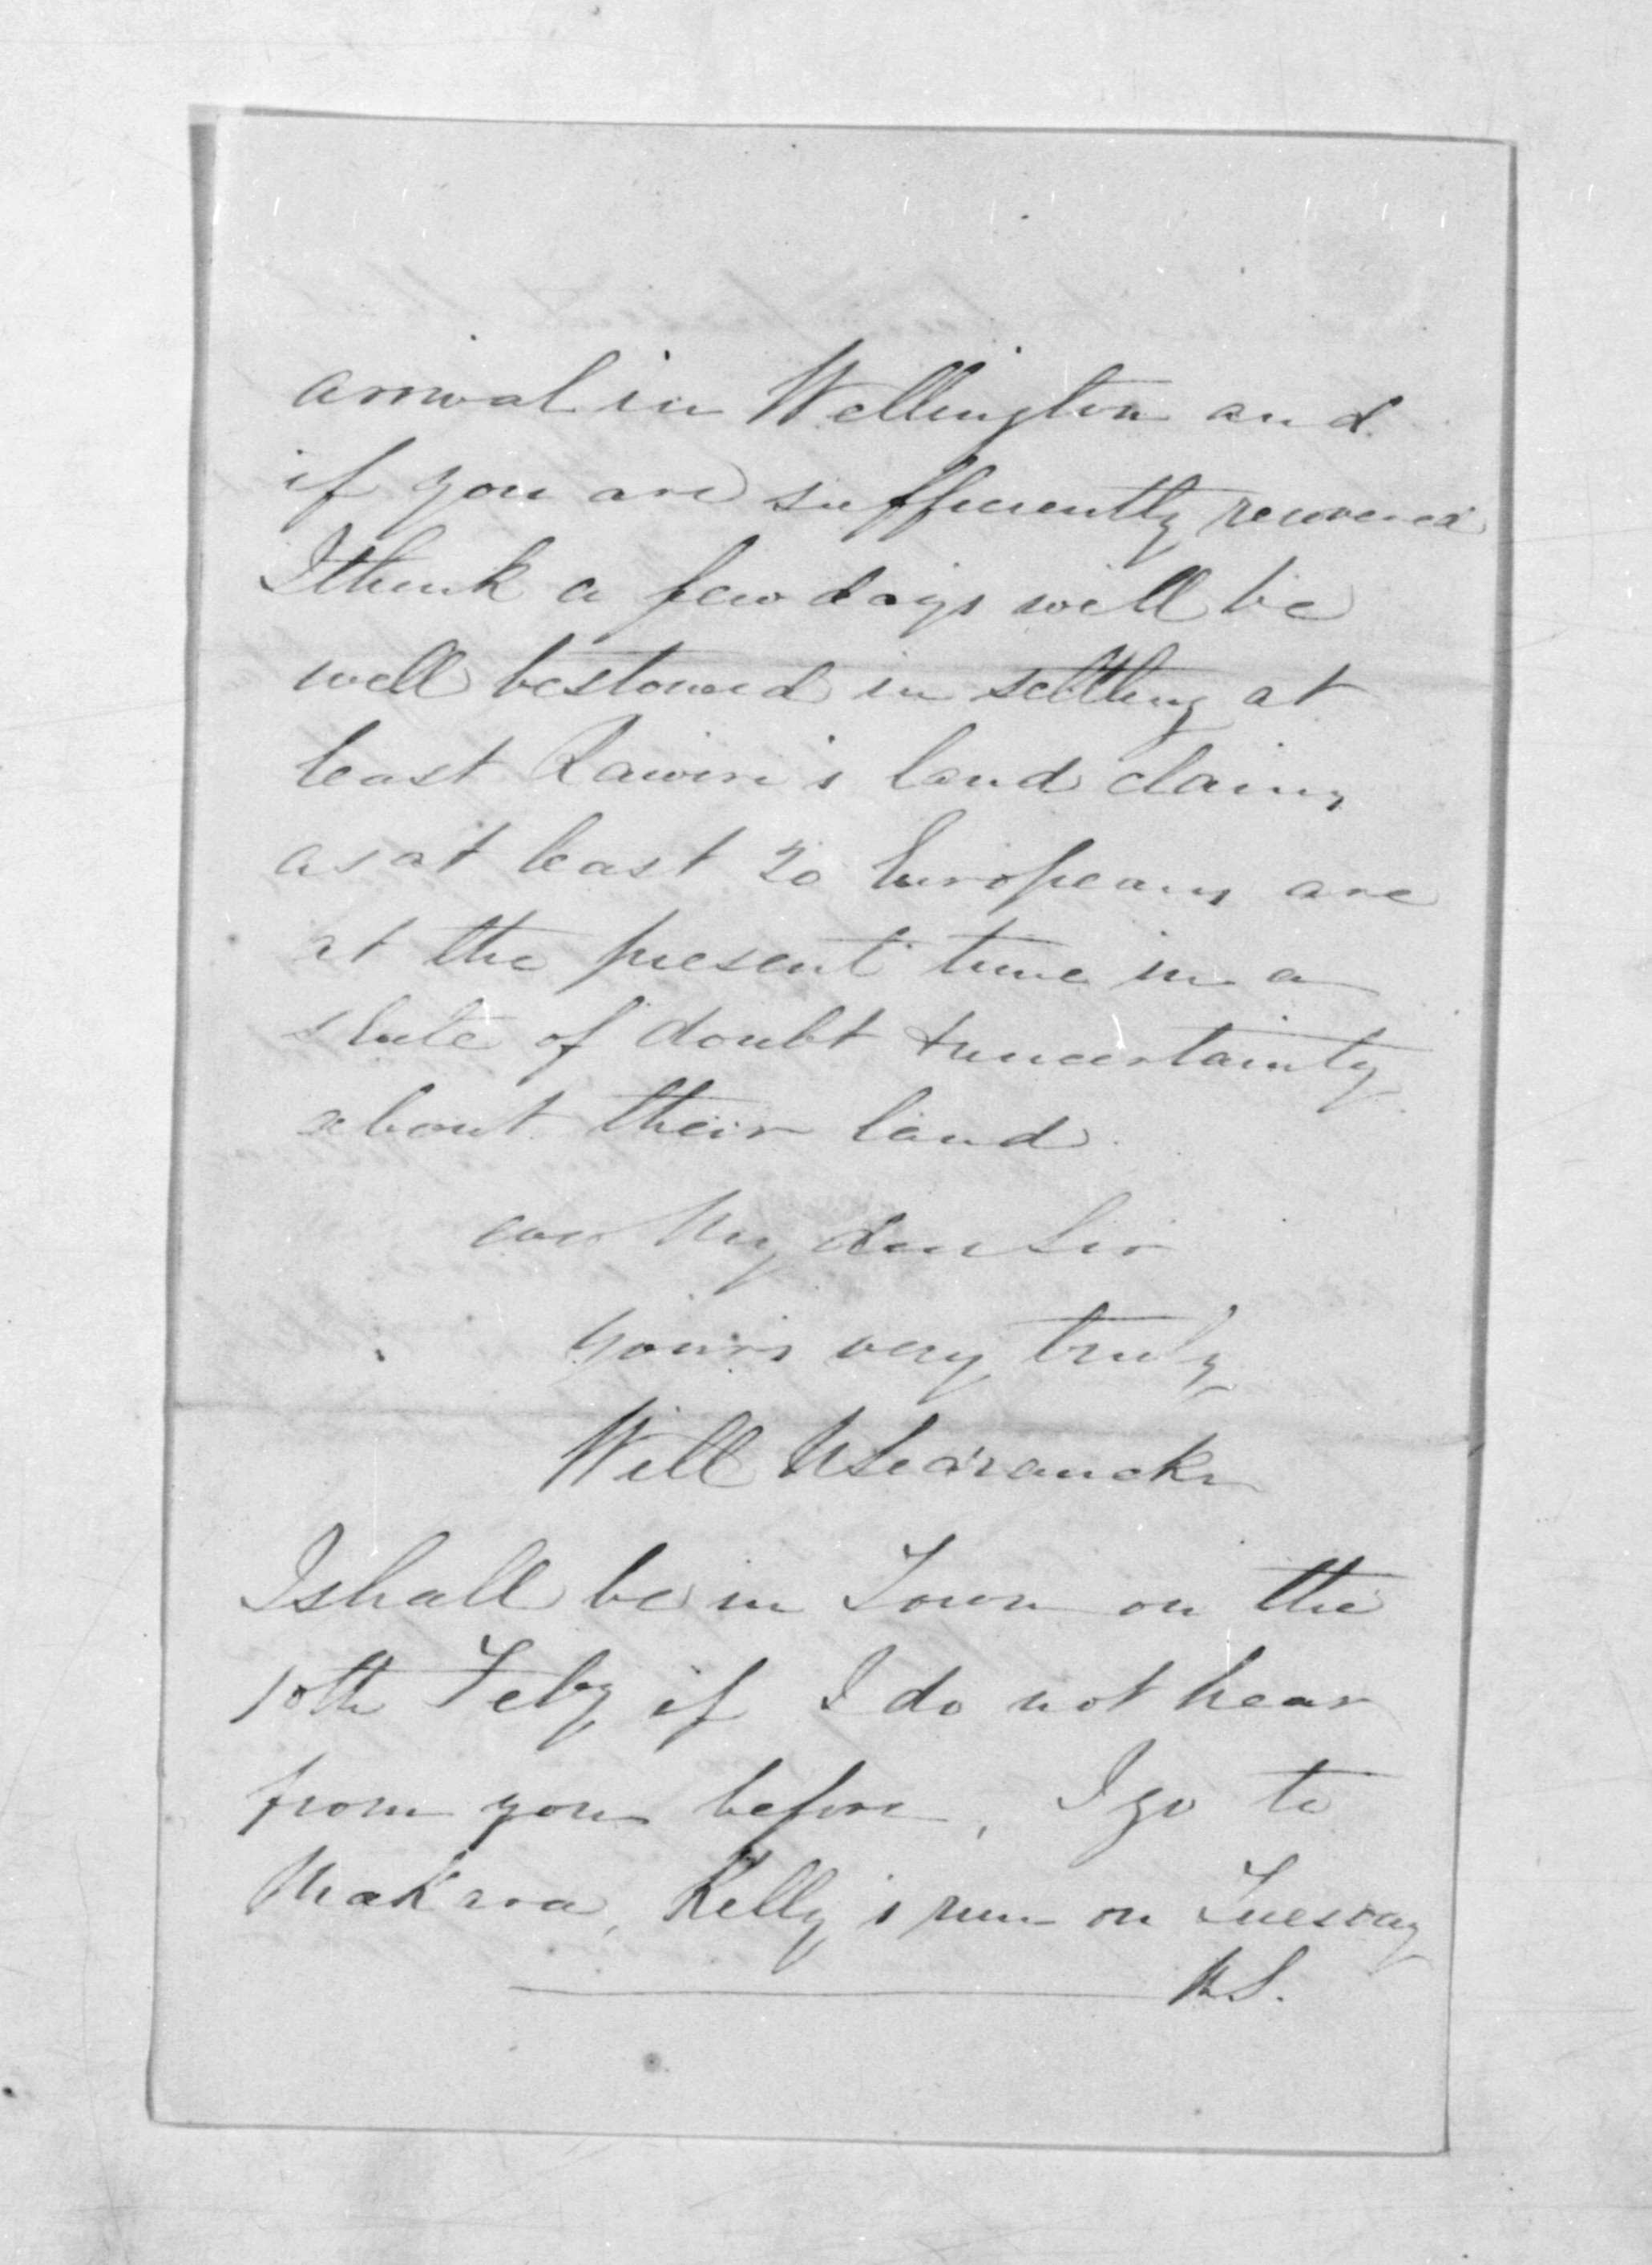 arrival in Wellington and
if you are sufficiently recovered
I think a few days will be
well bestowed in settling at
least Rawiri's land claims
as at least 20 Europeans are
at the present time in a
state of doubt & uncertainty
about their land
ever My dear Sir
yours very truly
Will N Searancke
I shall be in Town on the
10th Feby if I do not hear
from you before, I go to
Makara, Kelly's run on Tuesday
WS.